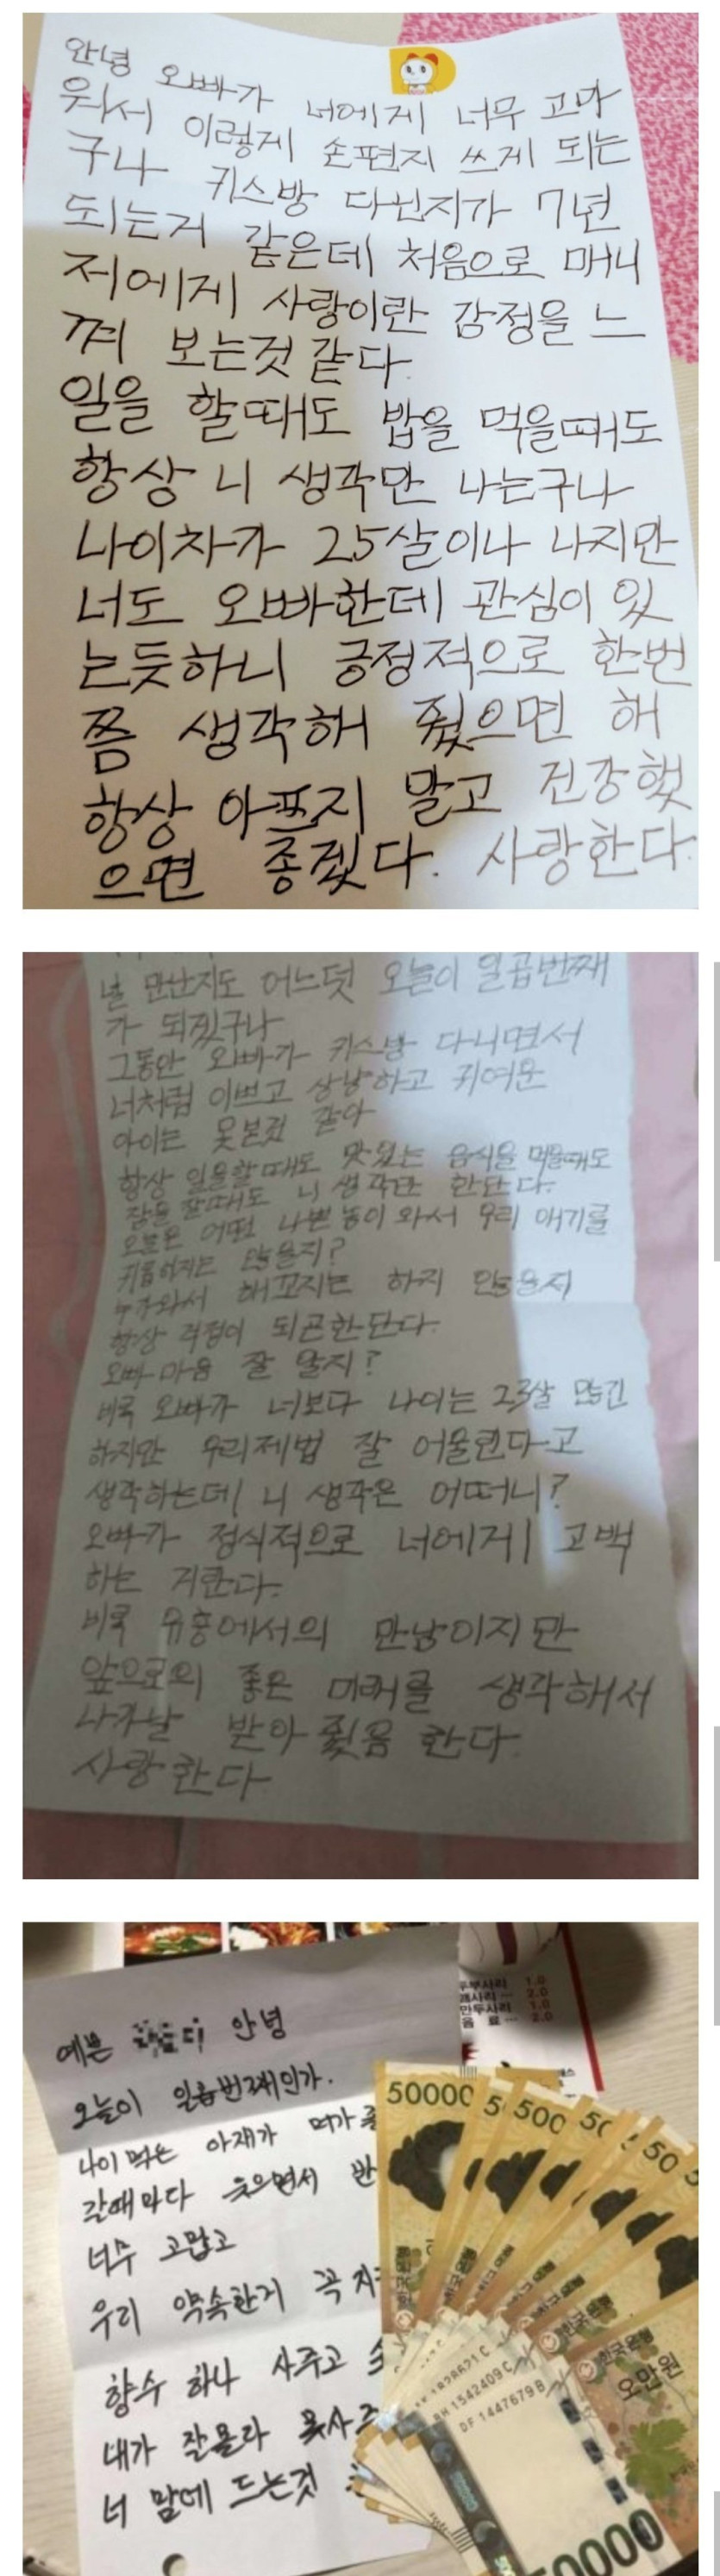 안녕 오빠가 너에게 너무 고마
워서 이렇게 손편지 쓰게 되는
구나 키스방 다닌지가 7년
되는거 같은데 처음으로 매니
저에게 사랑이란 감정을 느
껴 보는것 같다.
일을 할때도 밥을 먹을때도
항상 니 생각만 나는구나
나이차가 25살이나 나지만
너도 오빠한데 관심이 있
는듯하니 긍정적으로 한번
쯤 생각해 줬으면 해
항상 아프지 말고 건강했
으면 좋겠다. 사랑한다.
널 만난지도 어느덧 오늘이 일곱번째
가 되겠구나
그동안 오빠가 키스방 다니면서
너처럼 이쁘고 상냥하고 귀여운
아이는 못본것 같아
항상 일을할때도 맛있는 음식을 먹을때도
잠을 잘때도 니 생각만 한단다.
오늘은 어떤 나쁜놈이 와서 우리 애기를
않을지?
누가와서 해꼬지는 하지 않을지
항상 걱정이 되곤한단다.
오빠 마음 잘 알지?
비록 오빠가 너보다 나이는 23살 많긴
하지만 우리제법 잘 어울린다고
생각하는데 니 생각은 어떠니?
오빠가 정식적으로 너에게 고백
하는 거란다.
비록 유흥에서의 만남이지만
앞으로의 좋은 미래를 생각해서
나가날 받아 줬음 한다.
사랑한다
예쁜 안녕
오늘이 일곱번째인가.
나이 먹은 아재가 뭐가 좋
갈때마다 웃으면서 반
너무 고맙고
우리 약속한거 꼭 지켜
향수 하나 사주고
내가 잘몰라 못사주
너 맘에 드는것
두부사리 1.0
2.0
만두사리 1.0
음 료 2.0
50000
500
50
한국은행
한국은행
오만원
1542409C
DF 1447679B
50000